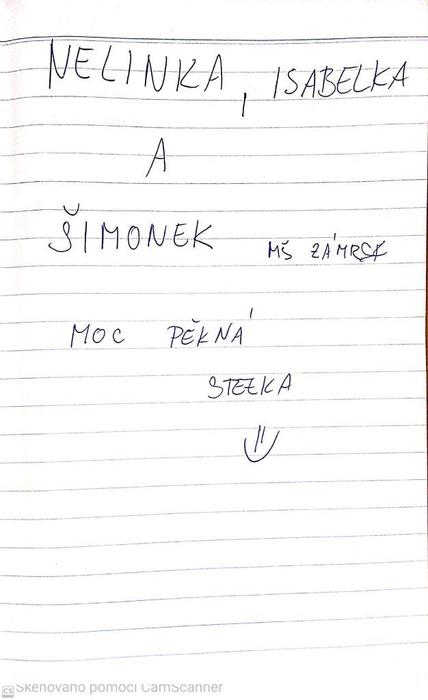 NELINKA, ISABELKA
A
ŠIMONEK MŠ ZÁMRSK
MOC PĚKNÁ
STEZKA
Skenováno pomocí CamScanner